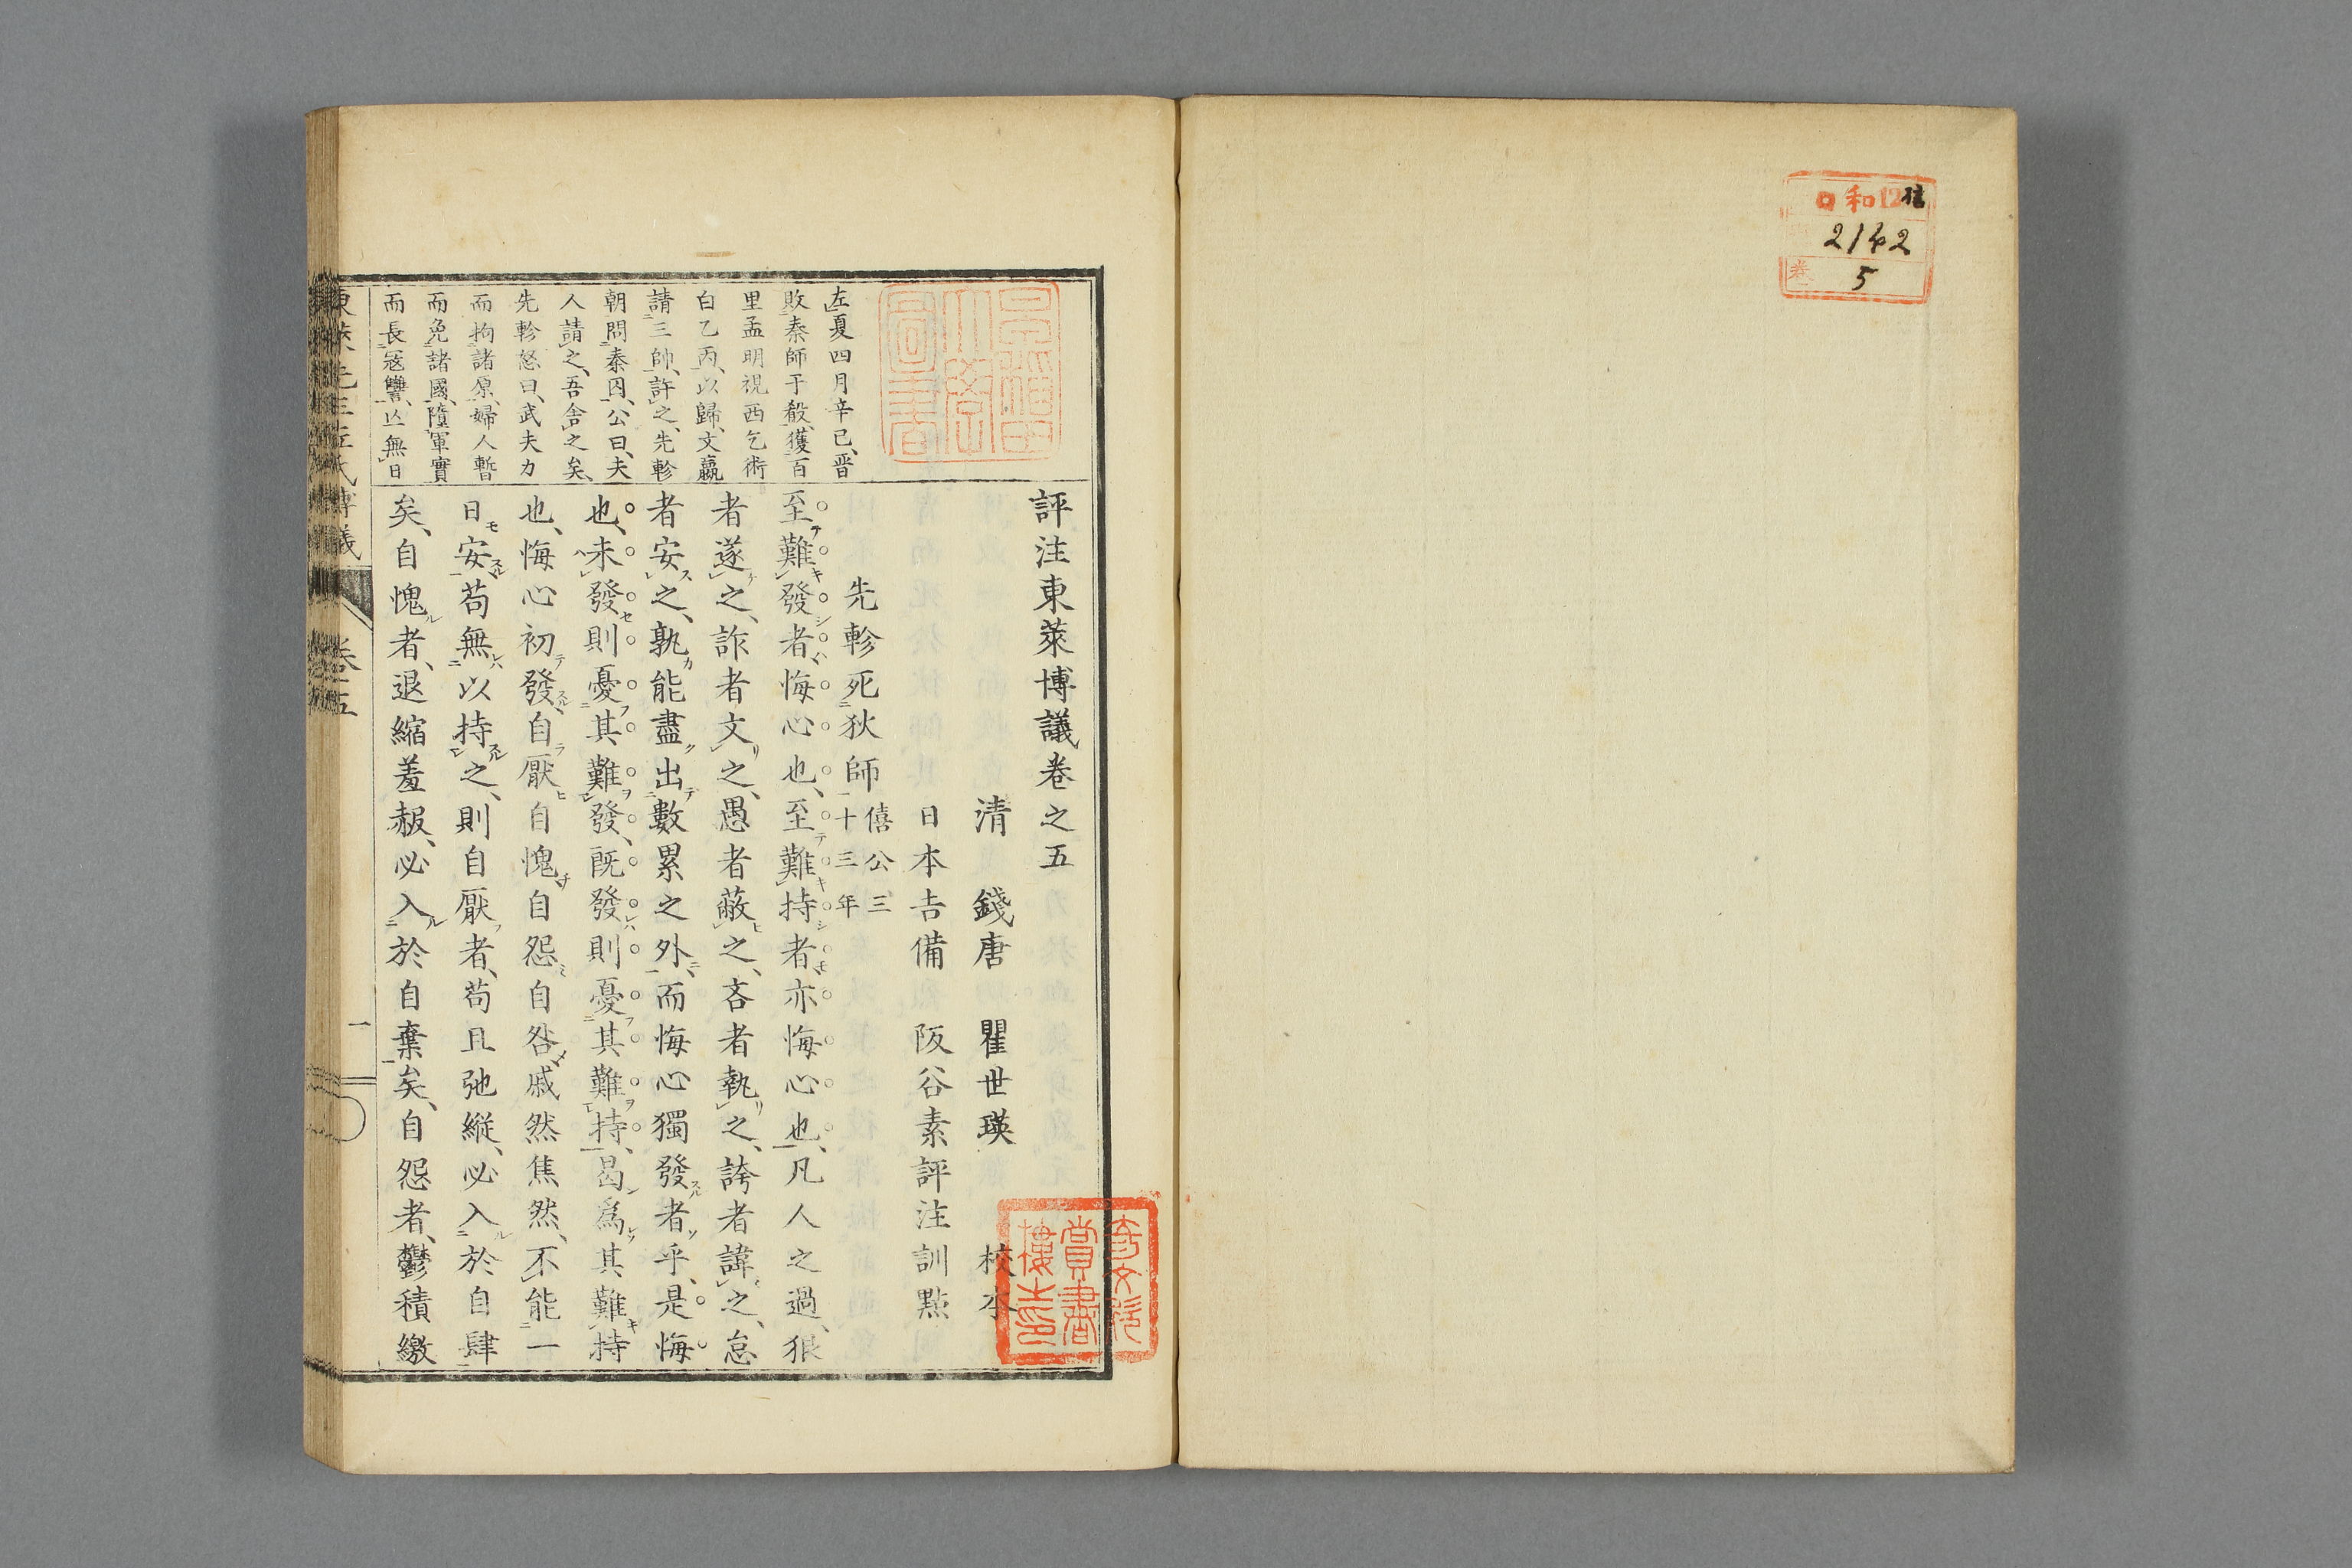 口和12
2142
卷 5
評注東萊博議卷之五
清 錢唐 瞿世瑛 校本
日本吉備 阪谷素評注訓點
先軫死狄師 僖公三十三年
至難發者、悔心也、至難持者、亦悔心也、凡人之過、狠
者遂之、詐者文之、愚者蔽之、吝者執之、誇者諱之、怠
者安之、孰能盡出數累之外、而悔心獨發者乎、是悔
也、未發則憂其難發、既發則憂其難持、曷為其難持
也、悔心初發、自厭自愧自怨自咎、戚然焦然、不能一
日安、苟無以持之、則自厭者、苟且弛縱、必入於自肆
矣、自愧者、退縮羞赧、必入於自棄矣、自怨者、鬱積繳
左夏四月辛已、晉
敗秦師于殽、獲百
里孟明視西乞術
白乙丙、以歸、文嬴
請三帥、許之、先軫
朝問秦囚、公曰、夫
人請之、吾舍之矣、
先軫怒曰、武夫力
而拘諸原、婦人暫
而免諸國、墮軍實
而長寇讐、亾無日
東萊先生左氏博議 卷五 一
賞書
樓之印